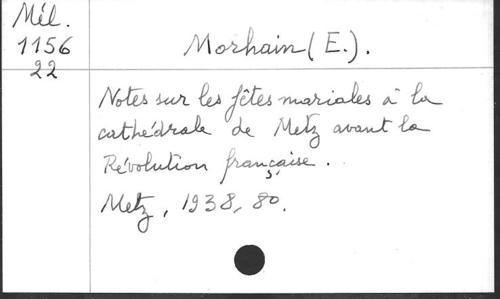 Mél.
1156
22
Morhain (E.).
Notes sur les fêtes mariales à la
cathédrale de Metz avant la
Révolution française.
Metz, 1938, 8o.